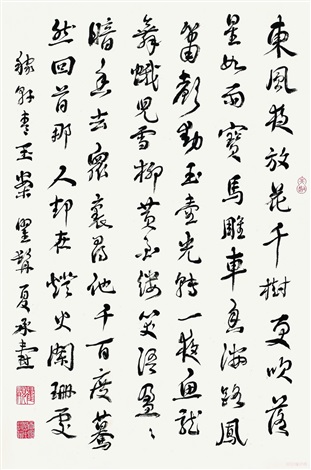 東風夜放花千樹更吹落
星如雨寶馬雕車香滿路鳳
簫聲動玉壺光轉一夜魚龍
舞蛾兒雪柳黃金縷笑語盈〻
暗香去眾裏尋他千百度驀
然回首那人却在燈火闌珊處
稼軒青玉案 瞿髯夏承燾